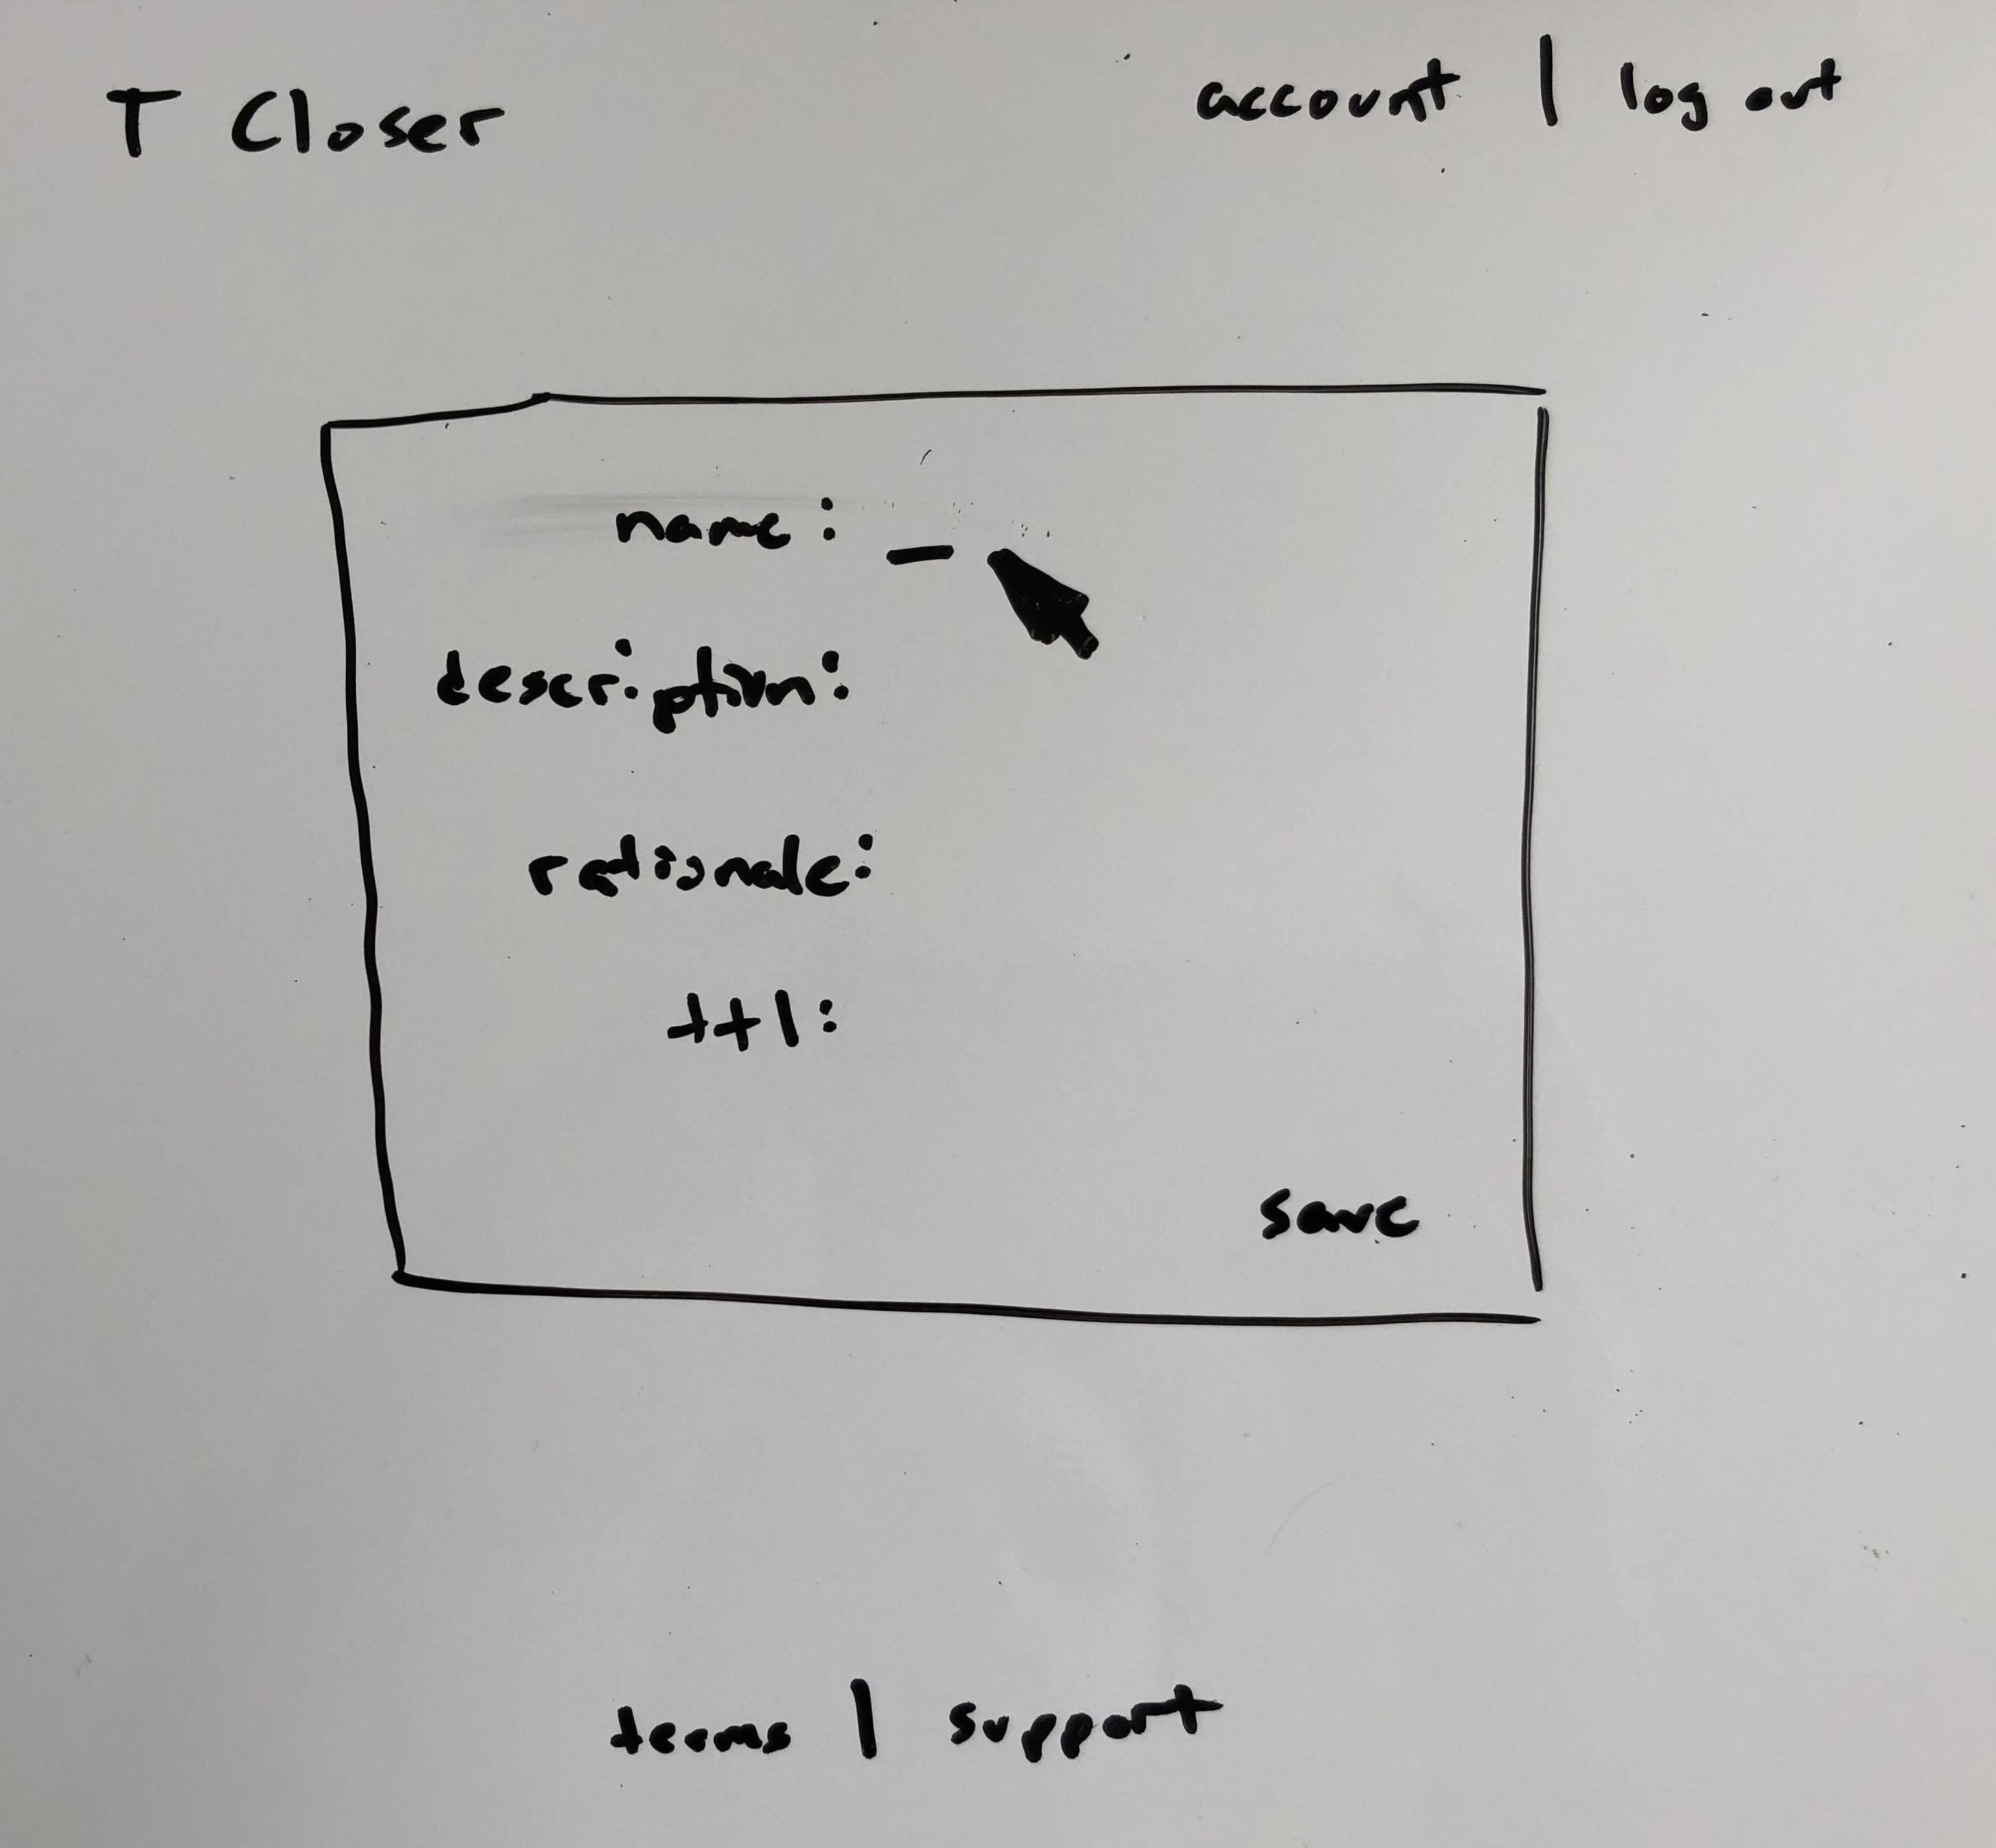 T Closer
account | log out
name: _
description:
rationale:
ttl:
save
terms | support